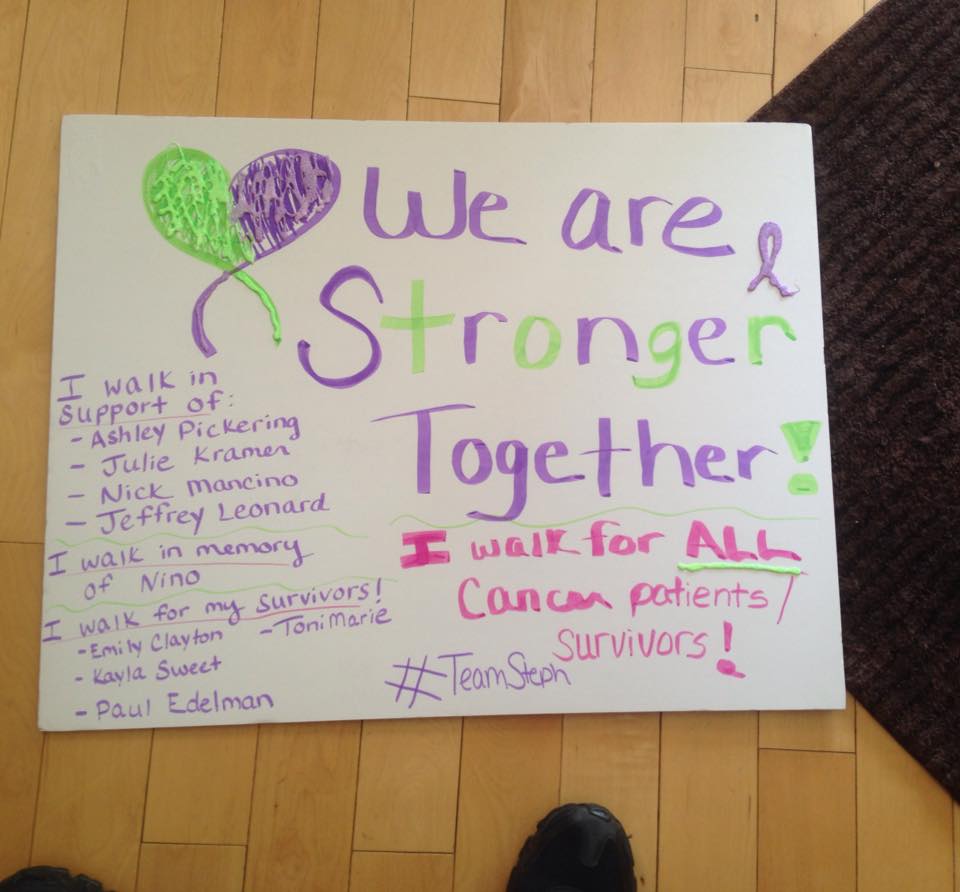 We are
Stronger
Together!
I walk in
support of:
- Ashley Pickering
- Julie Kramer
- Nick Mancino
- Jeffrey Leonard
I walk in memory
of Nino
I walk for my survivors!
- Emily Clayton - ToniMarie
- Kayla Sweet
- Paul Edelman
I walk for ALL
Cancer patients/
survivors!
#TeamSteph